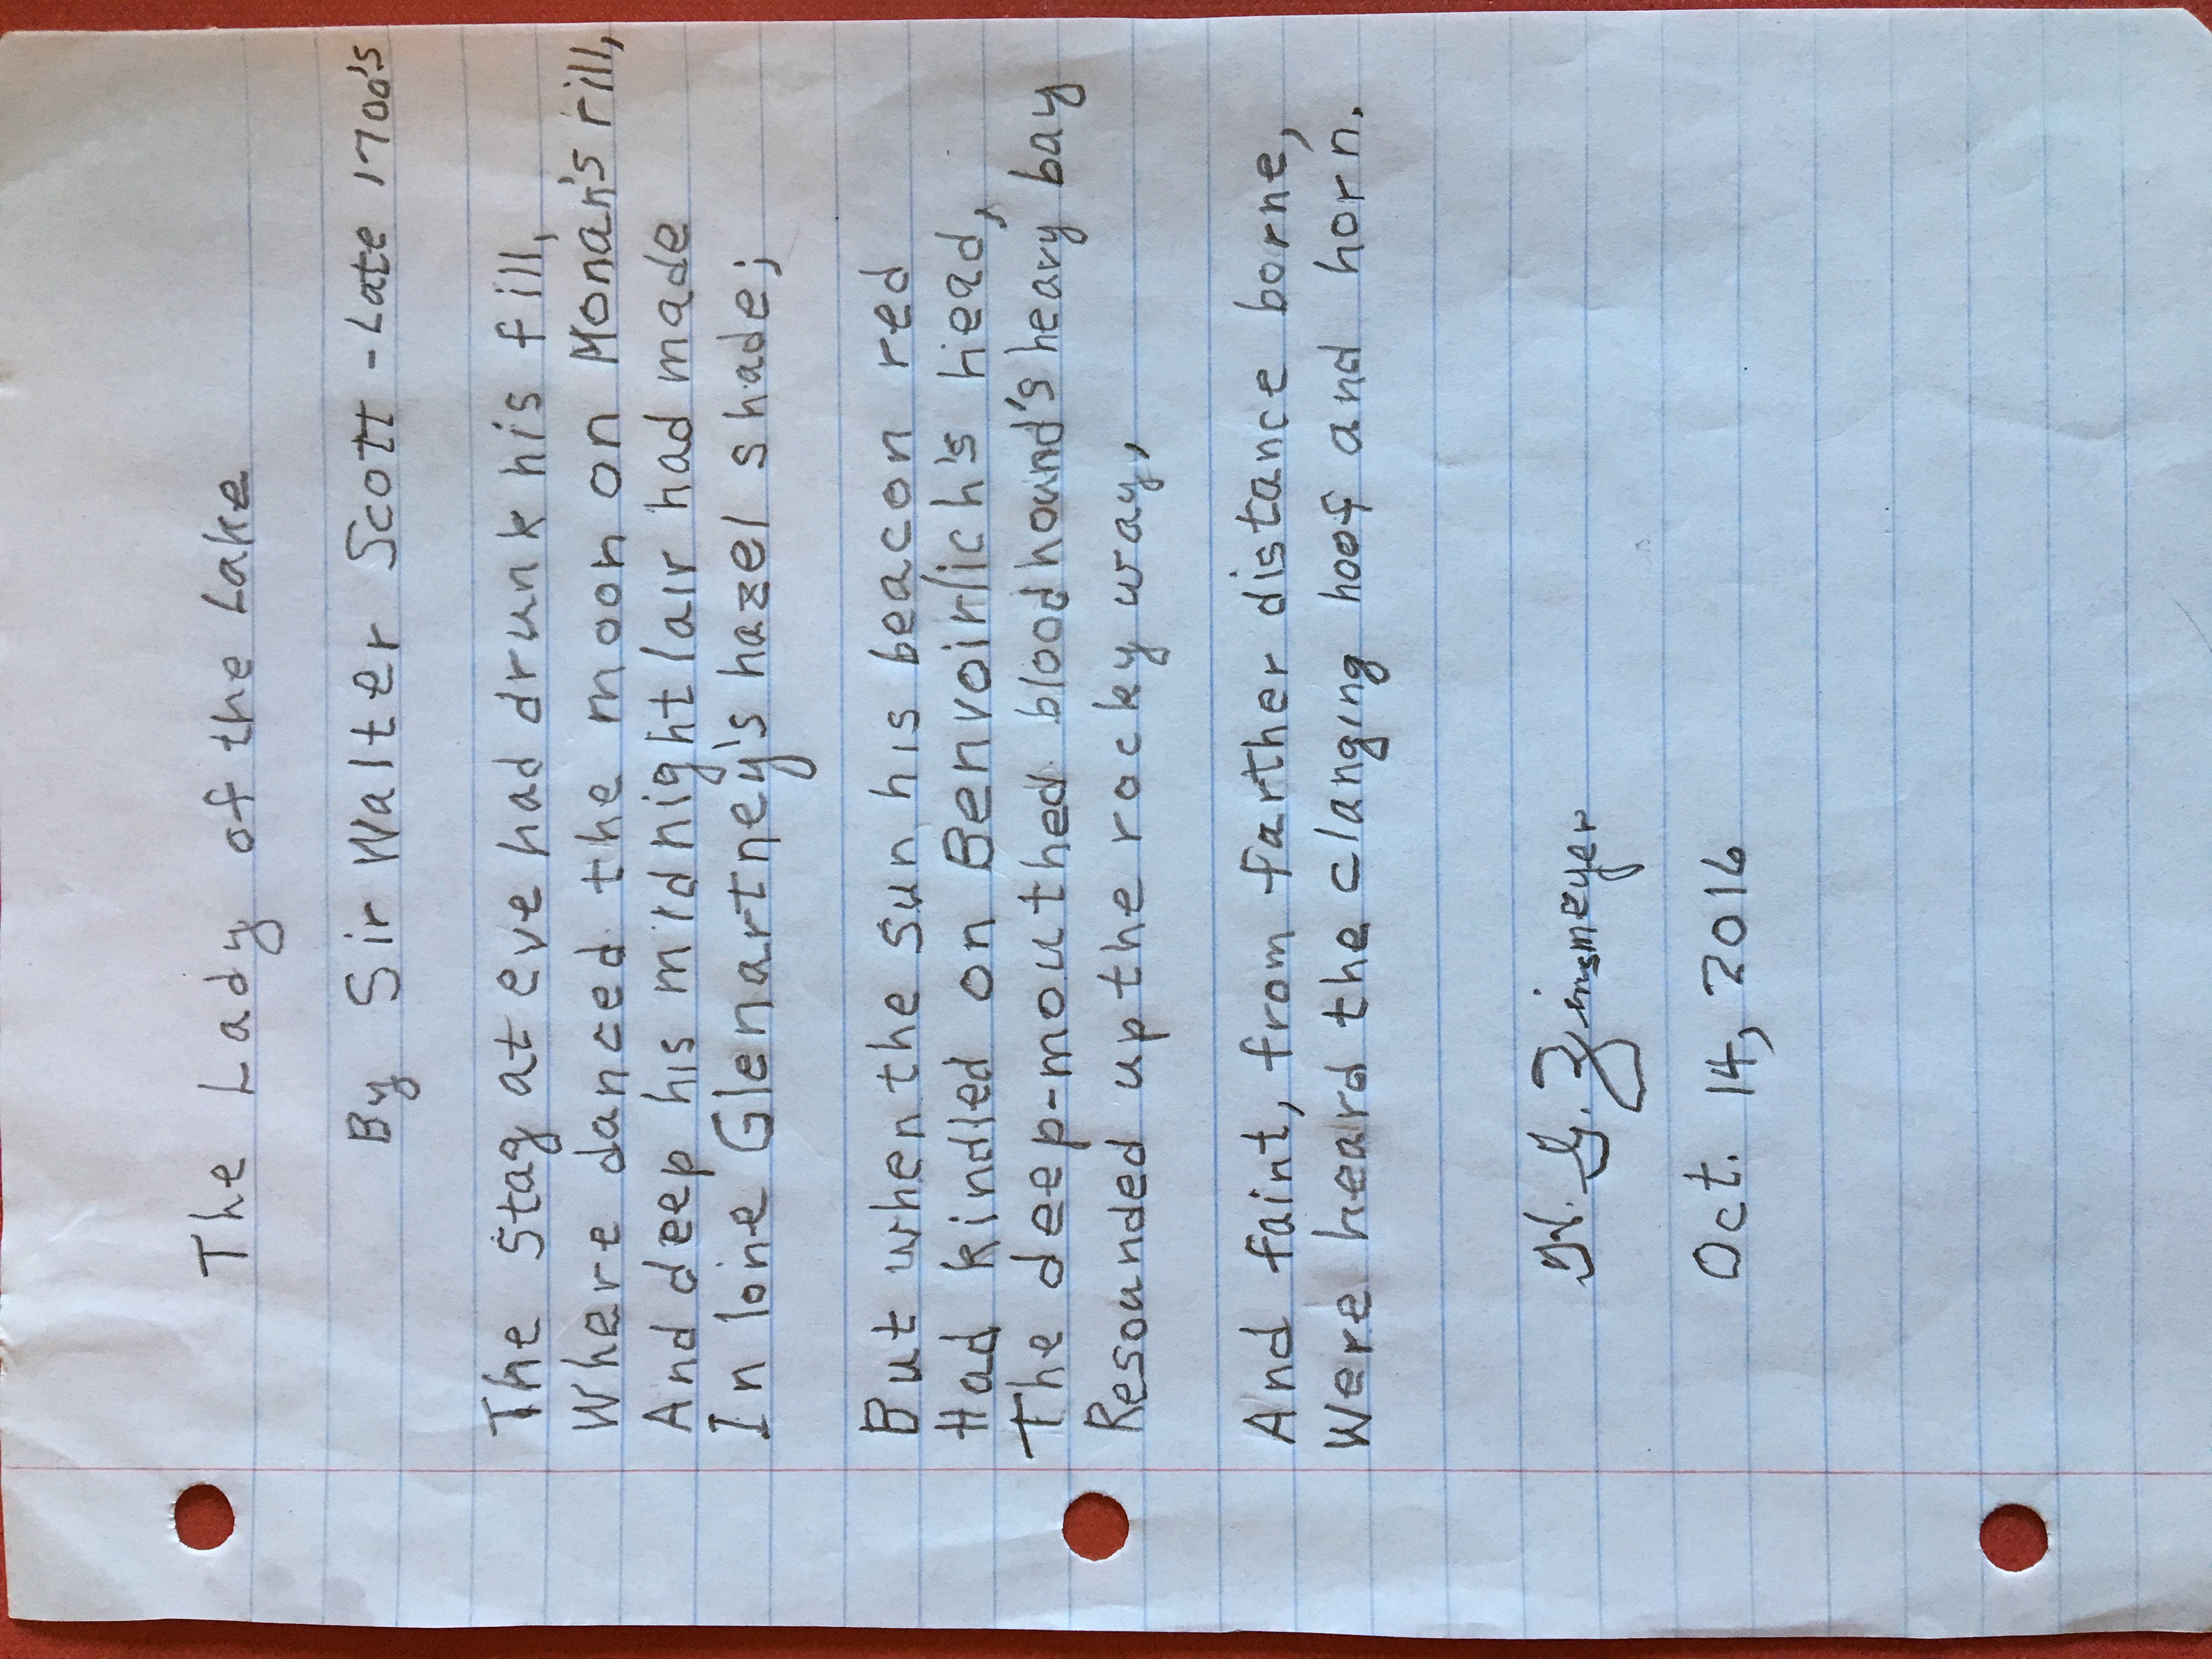 The Lady of the Lake
By Sir Walter Scott - Late 1700's
The Stag at eve had drunk his fill,
Where danced the moon on Monan's rill,
And deep his midnight lair had made
In lone Glenartney's hazel shade;
But when the sun his beacon red
Had kindled on Benvoirlich's head,
The deep-mouthed bloodhound's heavy bay
Resounded up the rocky way,
And faint, from farther distance borne,
Were heard the clanging hoof and horn.
Zinsmeyer
Oct. 14, 2016